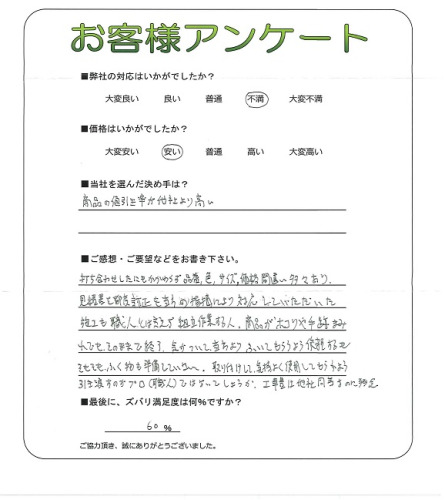 お客様アンケート
■弊社の対応はいかがでしたか?
大変良い 良い 普通 不満 大変不満
■価格はいかがでしたか?
大変安い 安い 普通 高い 大変高い
■当社を選んだ決め手は?
商品の値引き率が他社より高い
■ご感想・ご要望などをお書き下さい。
打ち合わせしたにもかかわらず品番、色、サイズ、価格間違い多々あり、
見積書を都度訂正を当方の指摘により対応していただいた
施工も職人とは言えず組立作業する人、商品がホコリや手跡まみ
れでも、そのままで終了、気がついて当方よりふいてもらうよう依頼するも
それでも、ふく物も準備していない、取り付けして気持よく使用してもらうよう
引き渡すのがプロ(職人)ではないでしょうか、工事費は他社同等なのに残念
■最後に、ズバリ満足度は何%ですか?
60 %
ご協力頂き、誠にありがとうございました。